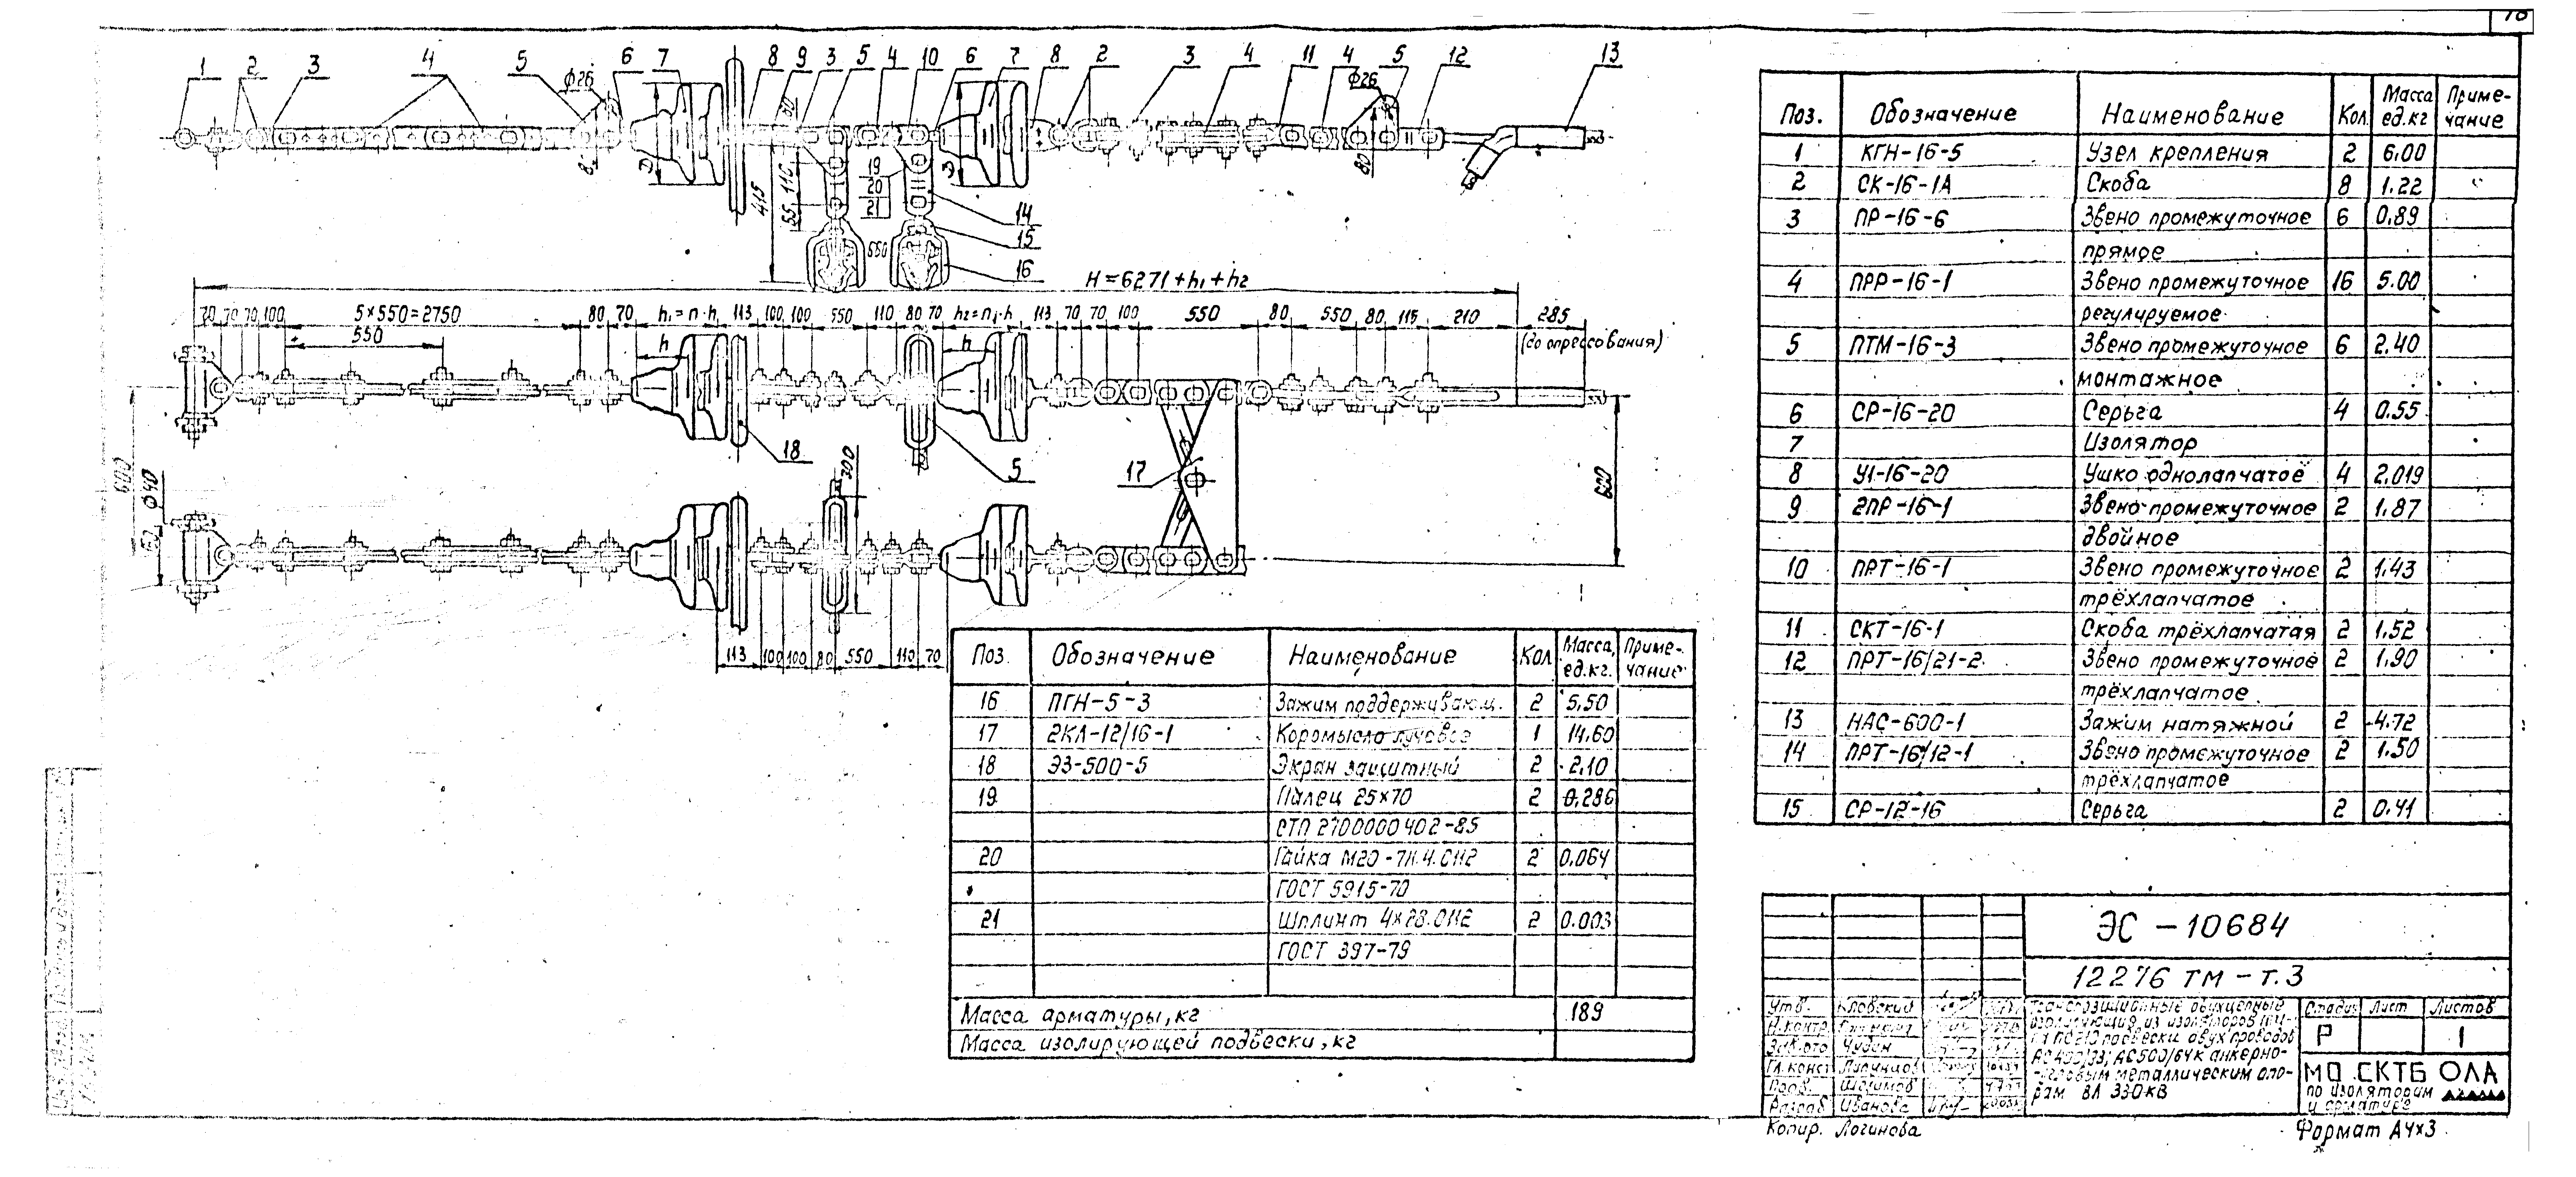 1 2 3 4 5 ф26 6 7 8 9 3 5 4 10 6 7 8 2 3 4 11 4 ф26 5 12 13
Э 415 55 110 80 19 20 21 550 14 15 16 Э 80
H=6271+h₁+h₂
70 70 70 100 5×550=2750 80 70 h₁=n·h 113 100 100 550 110 80 70 h₂=n₁·h 113 70 70 100 550 80 550 80 115 210 285
550 h h (до опрессования)
18 5 17
600 ф40 300 600
113 100 100 80 550 110 70
Поз. Обозначение Наименование Кол. Масса ед.кг Приме-чание
1 КГН-16-5 Узел крепления 2 6.00
2 СК-16-1А Скоба 8 1.22
3 ПР-16-6 Звено промежуточное 6 0.89
прямое
4 ПРР-16-1 Звено промежуточное 16 5.00
регулируемое
5 ПТМ-16-3 Звено промежуточное 6 2.40
монтажное
6 СР-16-20 Серьга 4 0.55
7 Изолятор
8 У1-16-20 Ушко однолапчатое 4 2.019
9 2ПР-16-1 Звено промежуточное 2 1.87
двойное
10 ПРТ-16-1 Звено промежуточное 2 1.43
трёхлапчатое
11 СКТ-16-1 Скоба трёхлапчатая 2 1.52
12 ПРТ-16/21-2 Звено промежуточное 2 1.90
трёхлапчатое
13 НАС-600-1 Зажим натяжной 2 4.72
14 ПРТ-16/12-1 Звено промежуточное 2 1.50
трёхлапчатое
15 СР-12-16 Серьга 2 0.41
Поз. Обозначение Наименование Кол Масса, ед.кг. Приме-чание
16 ПГН-5-3 Зажим поддерживающ. 2 5,50
17 2КЛ-12/16-1 Коромысло лучевое 1 14.60
18 ЭЗ-500-5 Экран защитный 2 2,10
19 Палец 25×70 2 0,286
СТП 2700000402-85
20 Гайка М20-7Н.4.0112 2 0,064
ГОСТ 5915-70
21 Шплинт 4×28.0112 2 0.003
ГОСТ 397-79
Масса арматуры, кг 189
Масса изолирующей подвески, кг
ЭС-10684
12276 ТМ-т.3
Утв. Кловский
Н.контр
Чудин
Гл.конст
Разраб Иванова
Транспозиционные двухцепные
подвески двух проводов
АС500/64 к анкерно-
угловым металлическим опо-
рам ВЛ 330кВ
Стадия Лист Листов
Р 1
МО СКТБ ОЛА
по изоляторам
и арматуре
Копир. Логинова
Формат А4×3